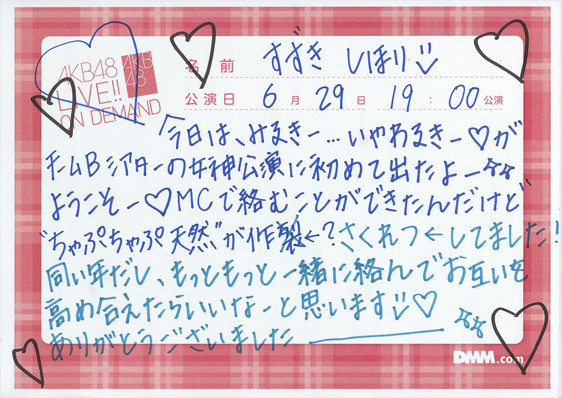 AKB48
LIVE!!
ON DEMAND
AKB
48
名前 すずき しほり
公演日 6月29日 19:00公演
「今日は、みるきー…いやわるきー♡が
チームBシアターの女神公演に初めて出たよー
ようこそー♡MCで絡むことができたんだけど
"ちゃぷちゃぷ天然"が作裂←?さくれつ←してました!
同い年だし、もっともっと一緒に絡んでお互いを
高め合えたらいいなーと思います♡
ありがとうございました
DMM.com